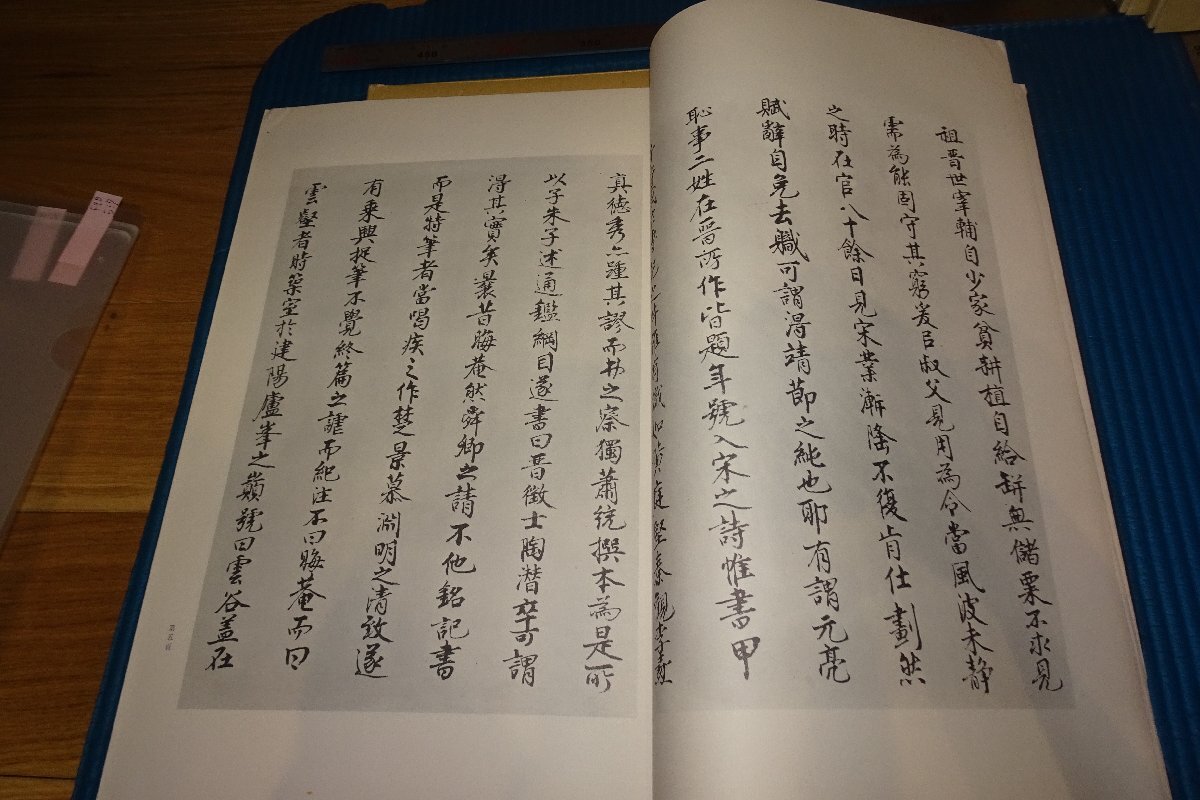 祖晋世宰輔自少家貧耕植自給缾無儲粟不求見
需為能固守其窮爰吕叔父見用為令當風波未静
之時在官八十餘日見宋業漸隆不復肯仕劃然
賦辭自免去職可謂淂靖節之純也耶有謂元亮
恥事二姓在晋所作皆題年號入宋之詩惟書甲
真徳秀亦踵其謬而劝之察獨蕭統撰本為是所
以子朱子述通鑑綱目遂書曰晋徴士陶潛卒可謂
淂其實矣曩昔晦菴然舜卿之請不他銘記書
而是特筆者當暍疾之作楚景慕淵明之清致遂
有乘興捉筆不覺終篇之謔而紀注不曰晦菴而曰
雲壑者時築室於建陽廬峯之巔號曰雲谷盖在
第五頁